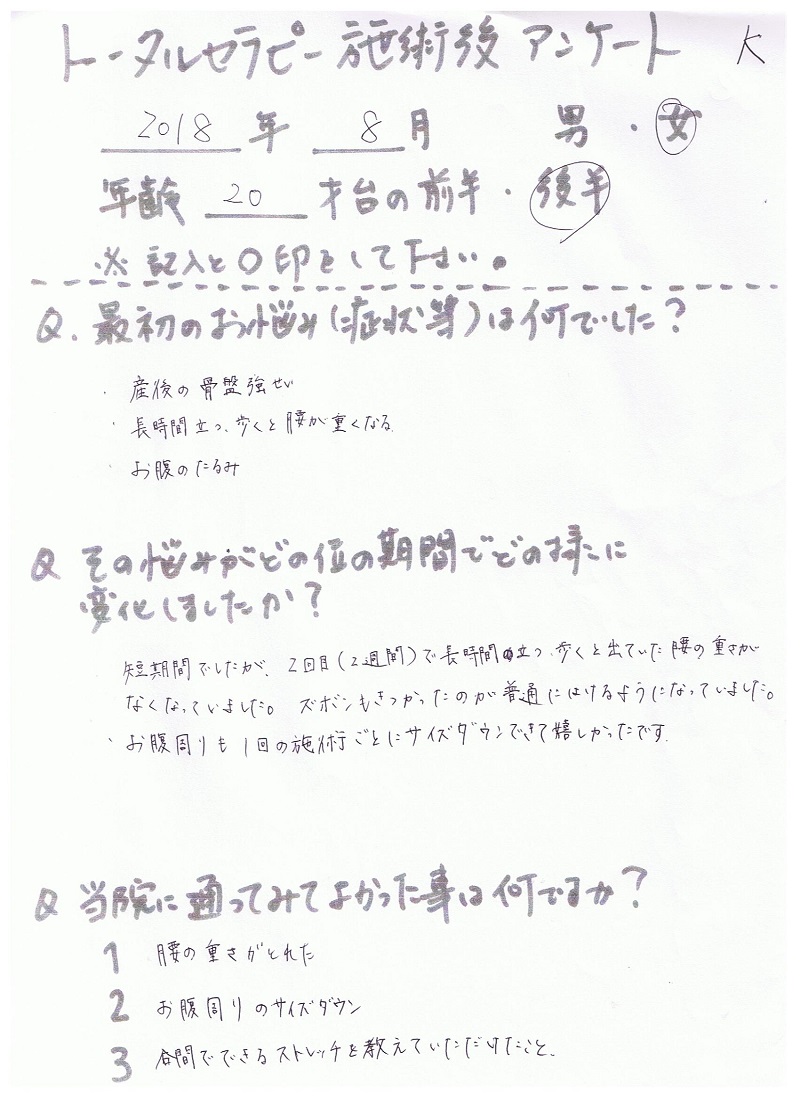 トータルセラピー施術後 アンケート K
2018 年 8 月 男・女
年齢 20 才台の前半・後半
※ 記入と○印をして下さい。
Q. 最初のお悩み(症状等)は何でした?
・産後の骨盤強せい
・長時間立つ、歩くと腰が重くなる。
・お腹のたるみ
Q その悩みがどの位の期間でどの様に
変化しましたか?
短期間でしたが、2回目(2週間)で長時間立つ、歩くと出ていた腰の重さが
なくなっていました。ズボンもきつかったのが普通にはけるようになっていました。
・お腹周りも1回の施術ごとにサイズダウンできて嬉しかったです。
Q 当院に通ってみてよかった事は何ですか?
1 腰の重さがとれた
2 お腹周りのサイズダウン
3 合間でできるストレッチを教えていただけたこと。